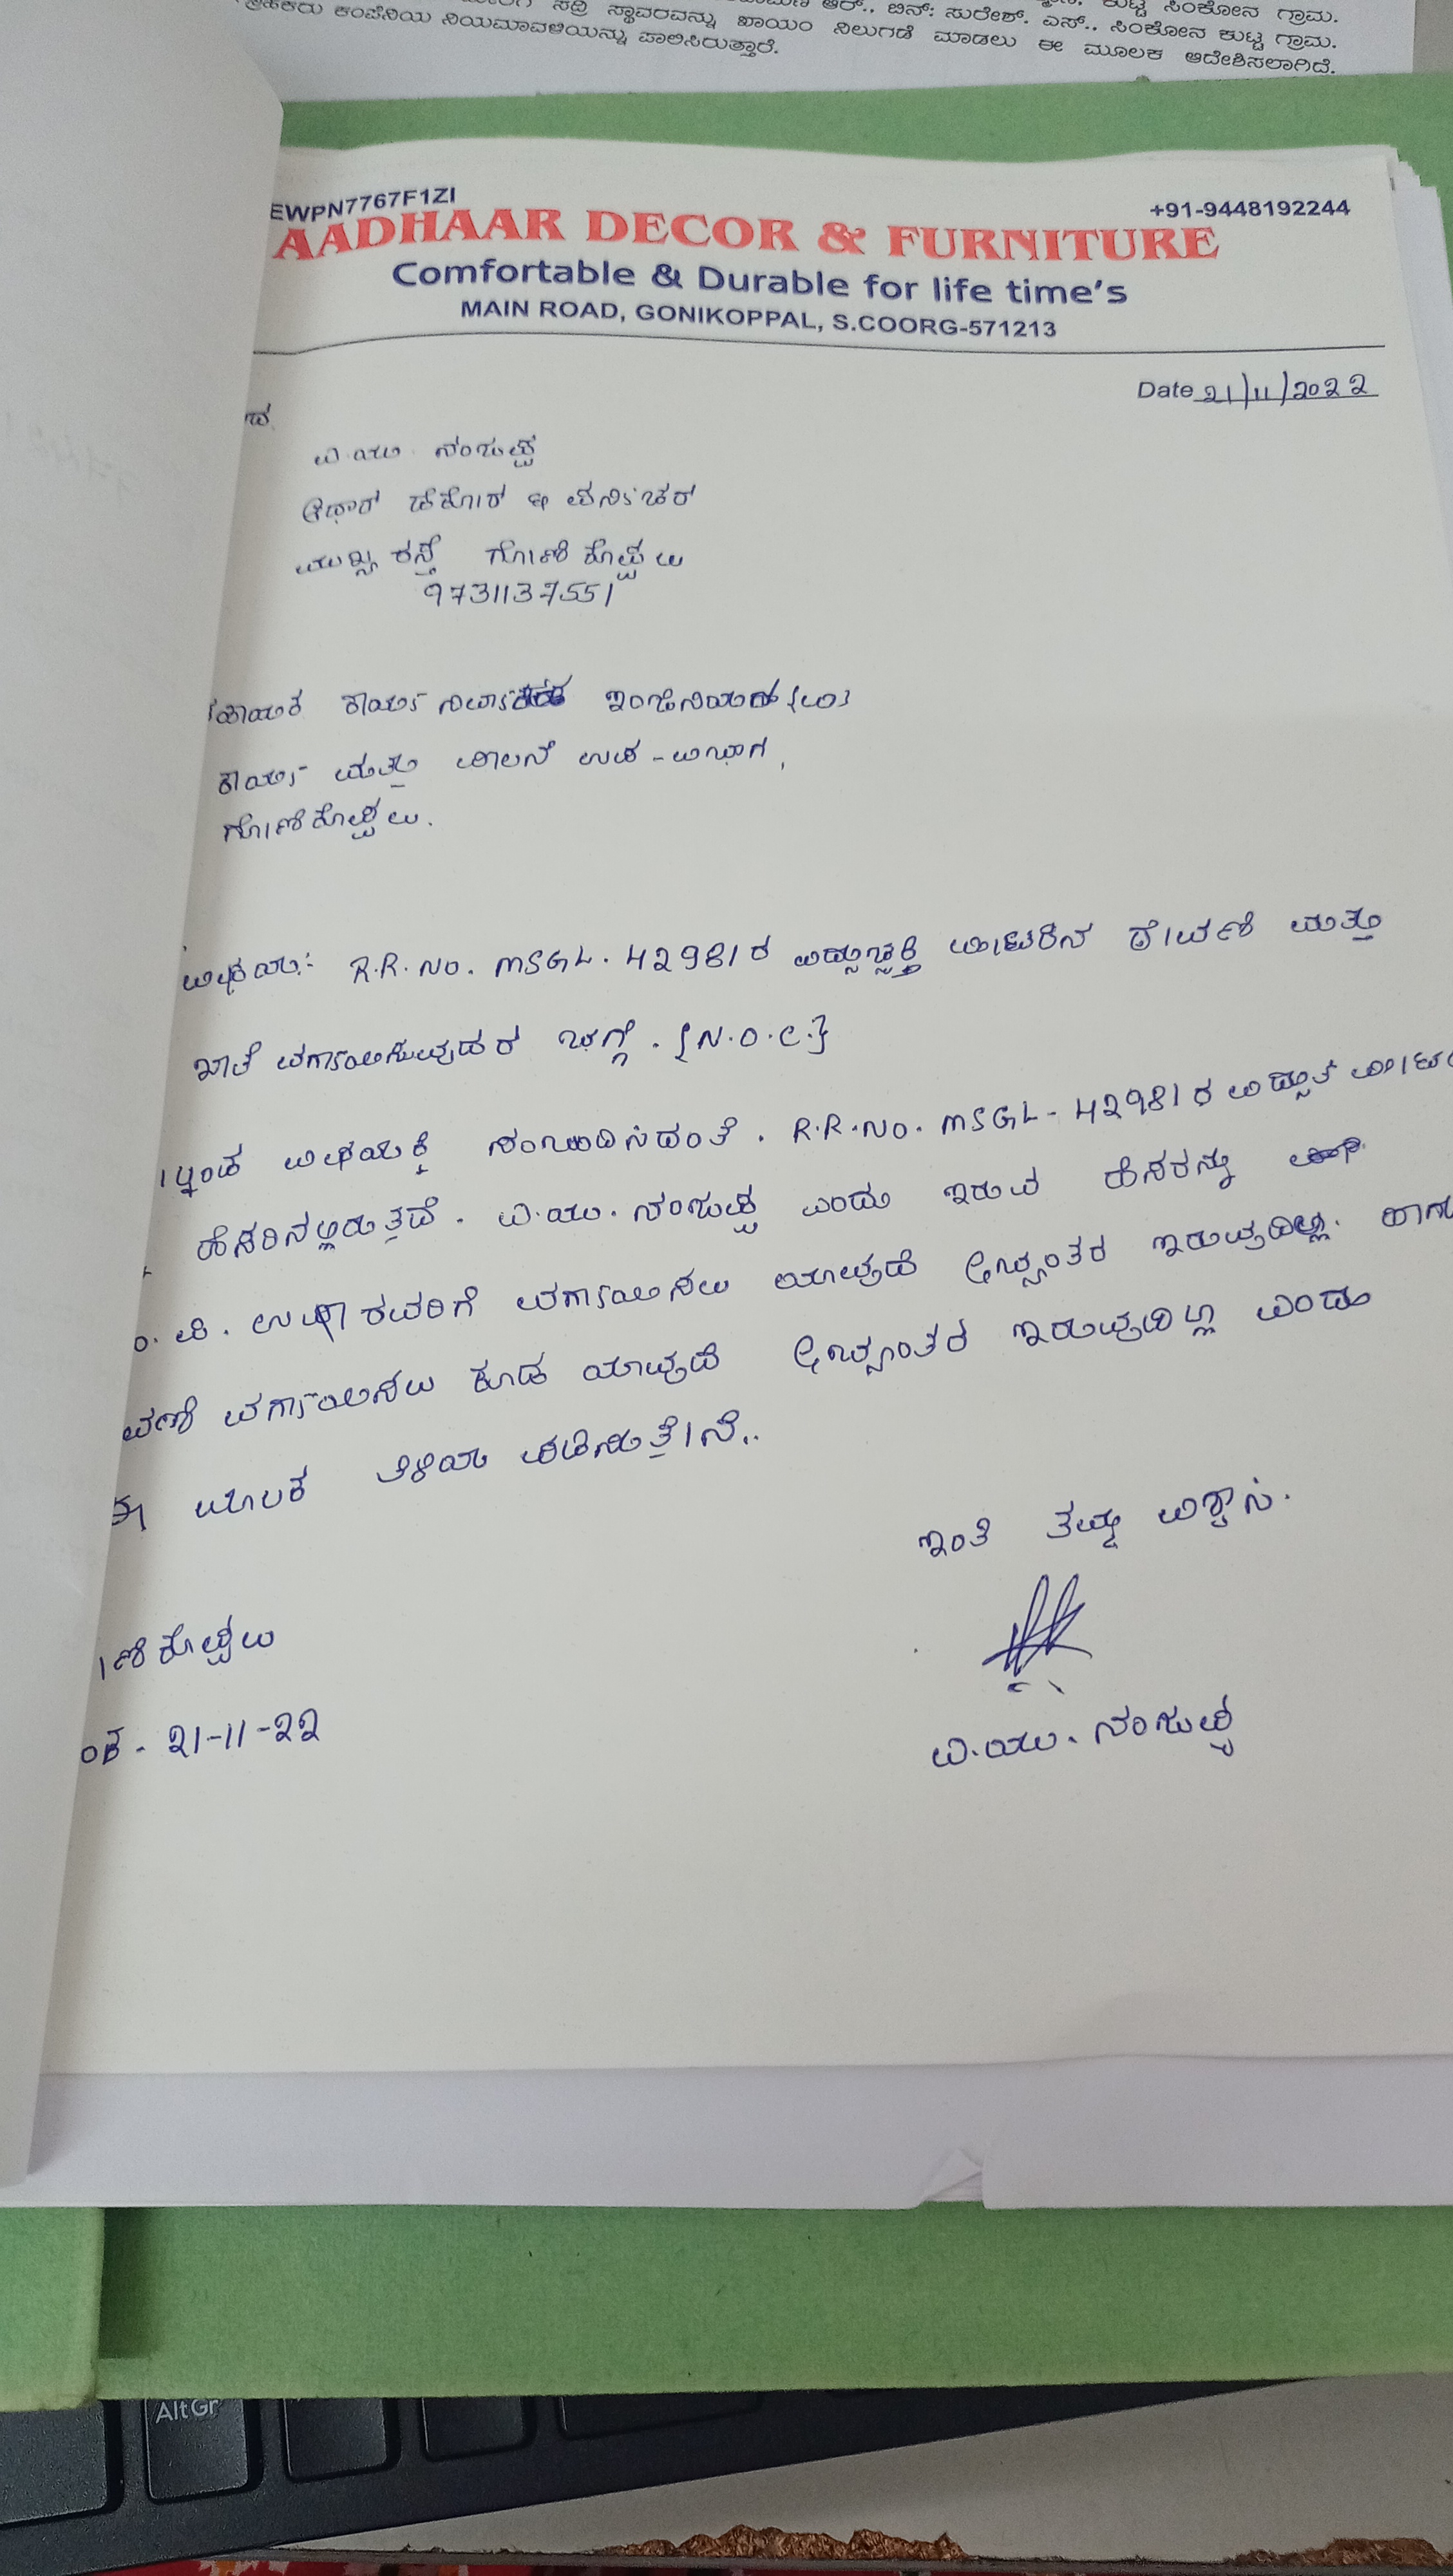 ಸದ್ರಿ ಸ್ಥಾವರವನ್ನು ಖಾಯಂ ನಿಲುಗಡೆ ಮಾಡಲು ಈ ಮೂಲಕ ಆದೇಶಿಸಲಾಗಿದೆ.
ಆರ್., ಬಿನ್: ಸುರೇಶ್. ಎಸ್., ಸಿಂಕೋನ ಕುಟ್ಟ ಗ್ರಾಮ.
ಕುಟ್ಟ ಸಿಂಕೋನ ಗ್ರಾಮ.
ಕಂಪೆನಿಯ ನಿಯಮಾವಳಿಯನ್ನು ಪಾಲಿಸಿರುತ್ತಾರೆ.
EWPN7767F1ZI
+91-9448192244
AADHAAR DECOR & FURNITURE
Comfortable & Durable for life time's
MAIN ROAD, GONIKOPPAL, S.COORG-571213
Date 21/11/2022
ವಿ.ಯು. ನಂಜಪ್ಪ
ಆಧಾರ್ ಡೆಕೋರ್ & ಫರ್ನಿಚರ್
ಮುಖ್ಯ ರಸ್ತೆ ಗೋಣಿಕೊಪ್ಪಲು
9731137551
ಸಹಾಯಕ ಕಾರ್ಯ ಇಂಜಿನಿಯರ್ {ವಿ}
ಕಾರ್ಯ ಮತ್ತು ಪಾಲನೆ ಉಪ-ವಿಭಾಗ,
ಗೋಣಿಕೊಪ್ಪಲು.
ವಿಷಯ:- R.R.No. MSGL. 42981ರ ವಿದ್ಯುಚ್ಛಕ್ತಿ ಮೀಟರಿನ ಠೇವಣಿ ಮತ್ತು
ಖಾತೆ ವರ್ಗಾಯಿಸುವುದರ ಬಗ್ಗೆ. {N.O.C.}
ವಿಷಯಕ್ಕೆ ಸಂಬಂಧಿಸಿದಂತೆ. R.R.No. MSGL-42981ರ ವಿದ್ಯುತ್
ಹೆಸರಿನಲ್ಲಿರುತ್ತದೆ. ವಿ.ಯು.ನಂಜಪ್ಪ ಎಂದು ಇರುವ ಹೆಸರನ್ನು
ಪಿ. ಉಷಾರವರಿಗೆ ವರ್ಗಾಯಿಸಲು ಯಾವುದೆ ಅಭ್ಯಂತರ ಇರುವುದಿಲ್ಲ.
ವರ್ಗಾಯಿಸಲು ಕೂಡ ಯಾವುದೆ ಅಭ್ಯಂತರ ಇರುವುದಿಲ್ಲ ಎಂದು
ಈ ಮೂಲಕ ತಿಳಿಯ ಪಡಿಸುತ್ತೇನೆ..
ಇಂತಿ ತಮ್ಮ ವಿಶ್ವಾಸಿ.
ಣಿಕೊಪ್ಪಲು
ಂಕ - 21-11-22
ವಿ.ಯು. ನಂಜಪ್ಪ
AltGr